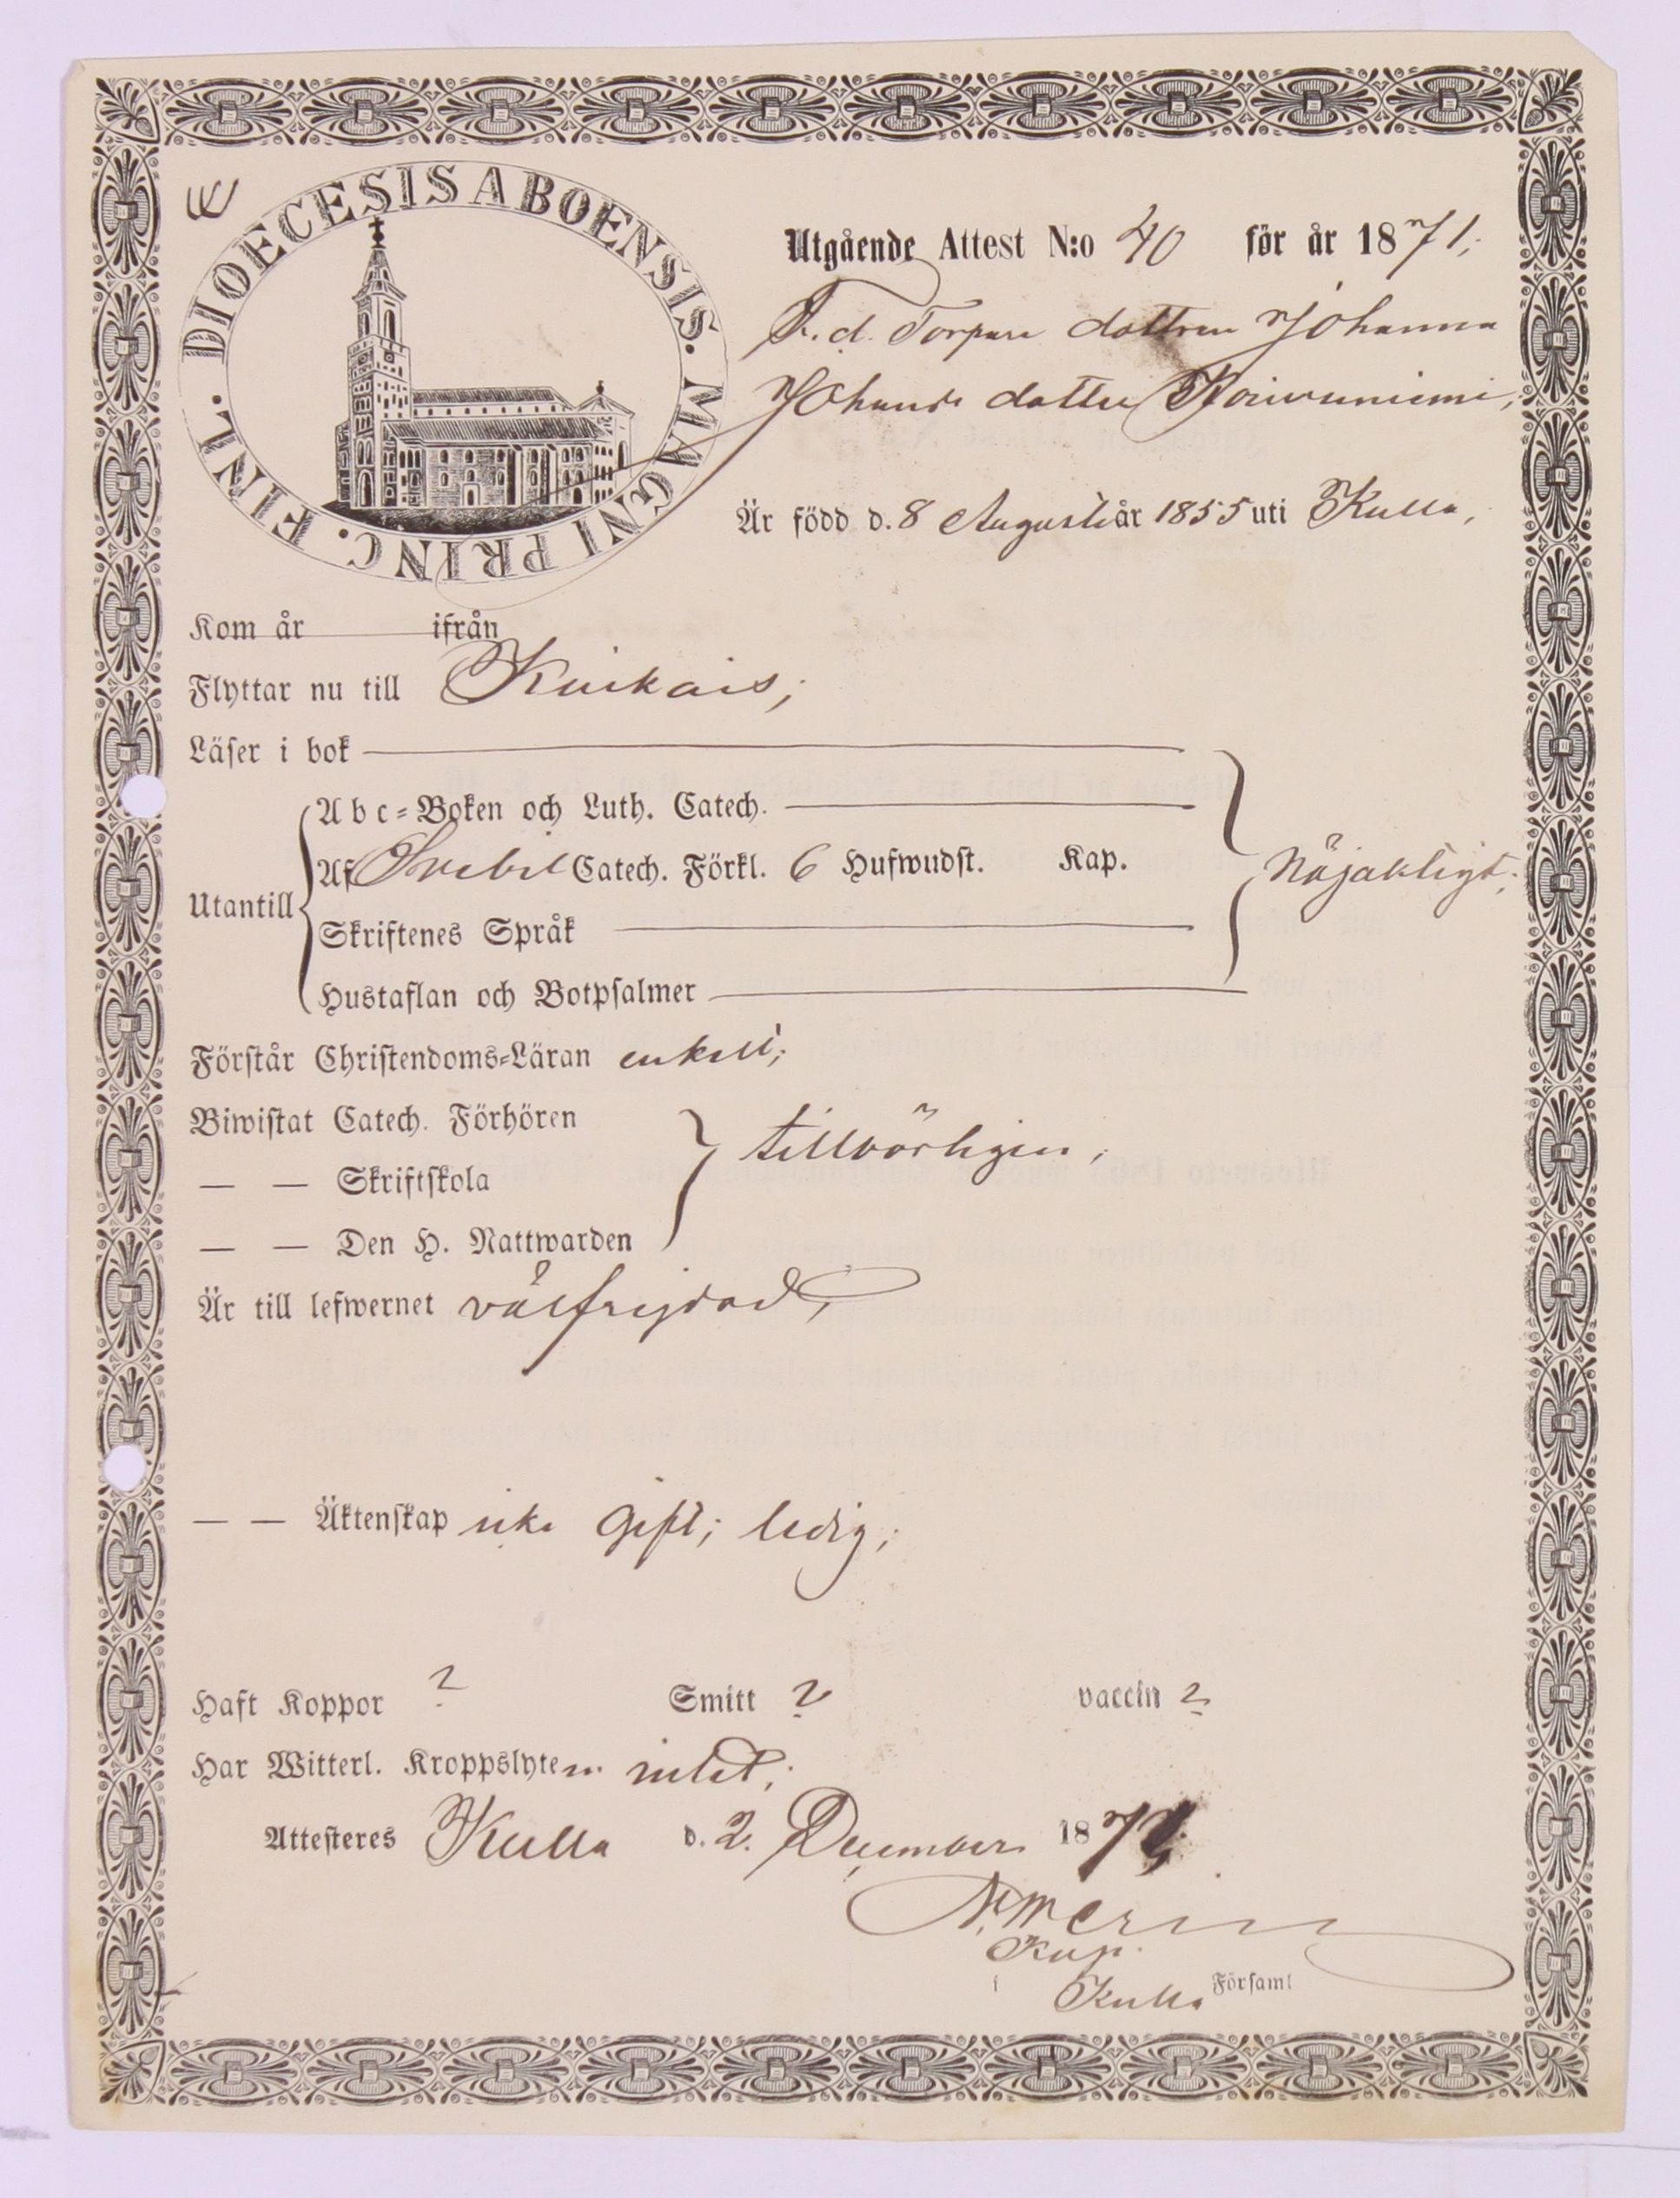 DIOECESIS ABOENSIS. MAGNI PRINC. FINL.
Utgående Attest N:o 40 för år 1871;
F. d. Torpare dottren Johanna
Johans dotter Koivuniemi,
Är född d. 8 Augusti år 1855 uti Kulla,
Kom år ifrån
Flyttar nu till Kiukais;
Läser i bok
Abc-Boken och Luth. Catech.
Utantill
Af Svebil Catech. Förkl. 6 Hufwudst. Kap.
Nöjaktigt;
Skriftenes Språk
Hustaflan och Botpsalmer
Förstår Christendoms-Läran enkelt;
Biwistat Catech. Förhören
— — Skriftskola
tillbörligen,
— — Den H. Nattwarden
Är till lefwernet välfrejdad,
— — Äktenskap icke gift; ledig;
Haft Koppor ? Smitt ? vaccin ?
Har Witterl. Kroppslyten intet;
Attesteres Kulla d. 2. December 187
Kap.
i Kulla Församl